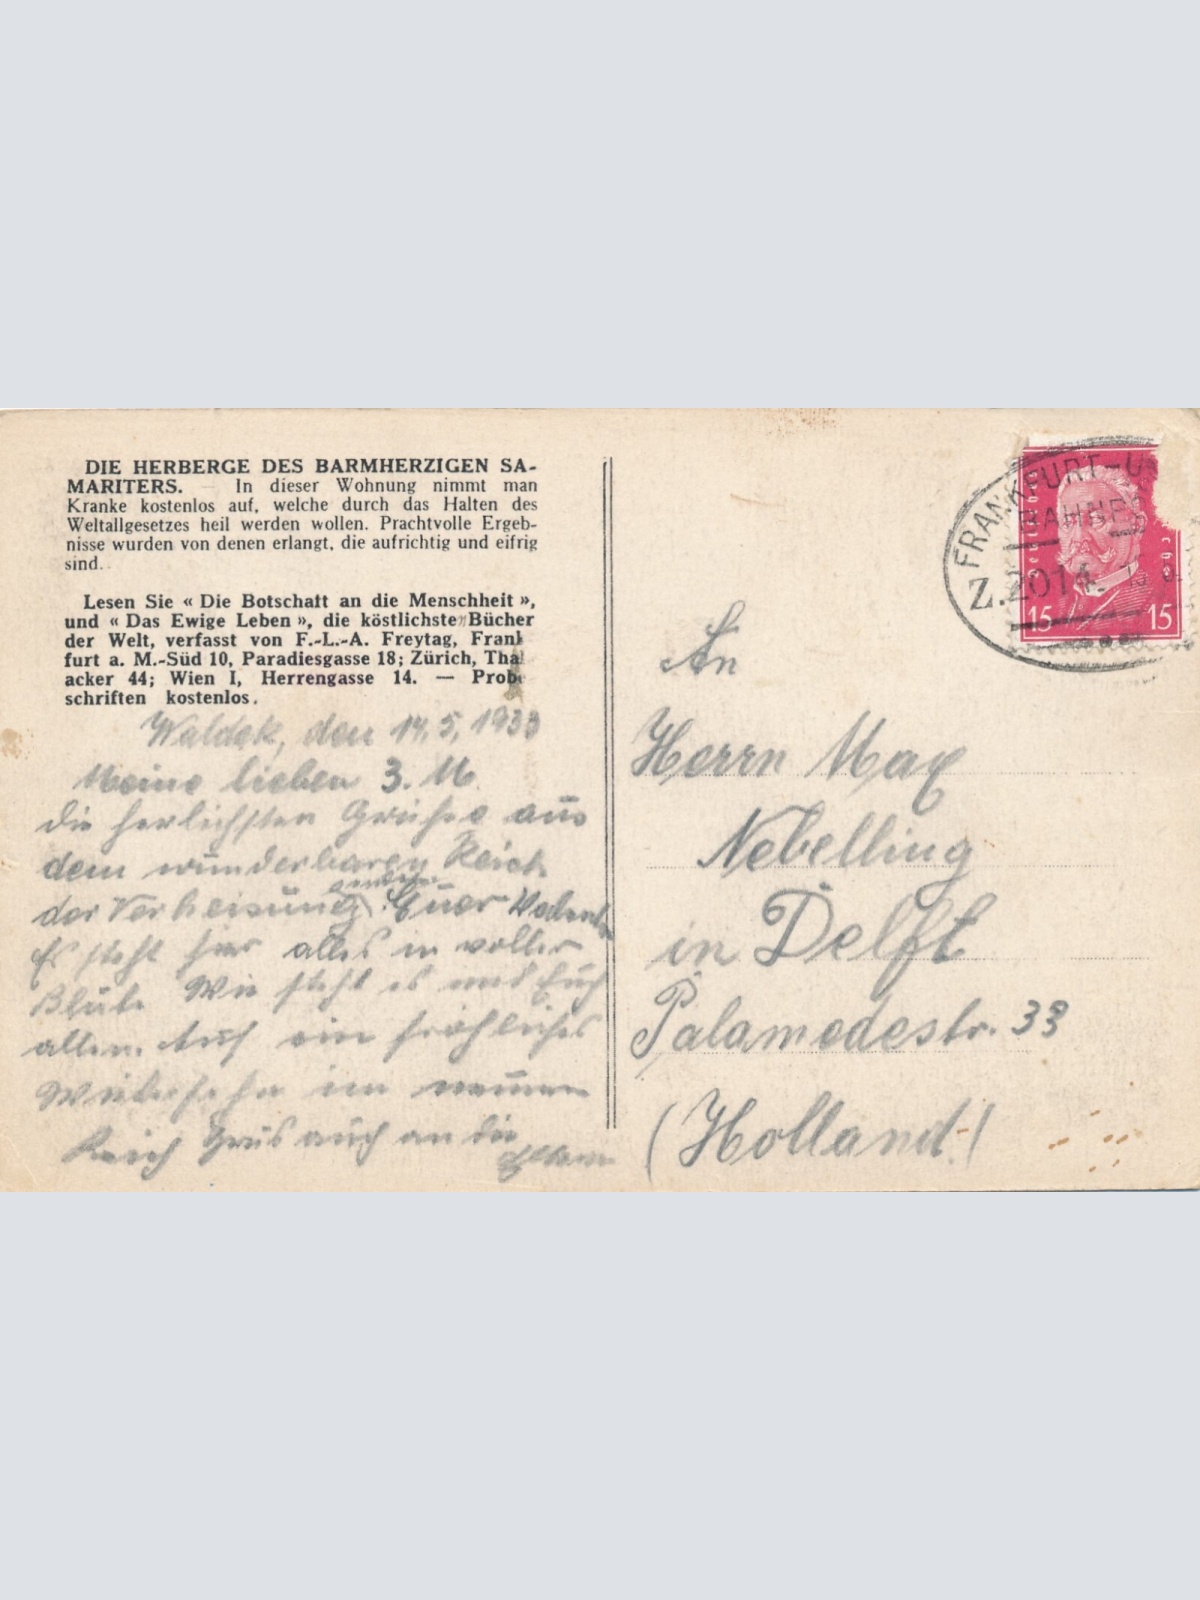 DIE HERBERGE DES BARMHERZIGEN SA-
MARITERS. — In dieser Wohnung nimmt man
Kranke kostenlos auf, welche durch das Halten des
Weltallgesetzes heil werden wollen. Prachtvolle Ergeb-
nisse wurden von denen erlangt, die aufrichtig und eifrig
sind.
Lesen Sie « Die Botschaft an die Menschheit »,
und « Das Ewige Leben », die köstlichste Bücher
der Welt, verfasst von F.-L.-A. Freytag, Frank
furt a. M.-Süd 10, Paradiesgasse 18; Zürich, Thal
acker 44; Wien I, Herrengasse 14. — Probe
schriften kostenlos.
Waldek, den 14.5.1933
Meine lieben 3. M
die herlichsten Grüße aus
dem wunderbaren Reich
der Verheisung Euer
Es steht hier alles in voller
Blüte Wie steht es mit Euch
allen. Auf ein fröhliches
Wiedersehn im neuen
Reich Grus auch an die
FRANKFURT-U
BAHNP
Z.2014
15 15
An
Herrn Max
Nebelling
in Delft
Palamedestr. 33
(Holland)